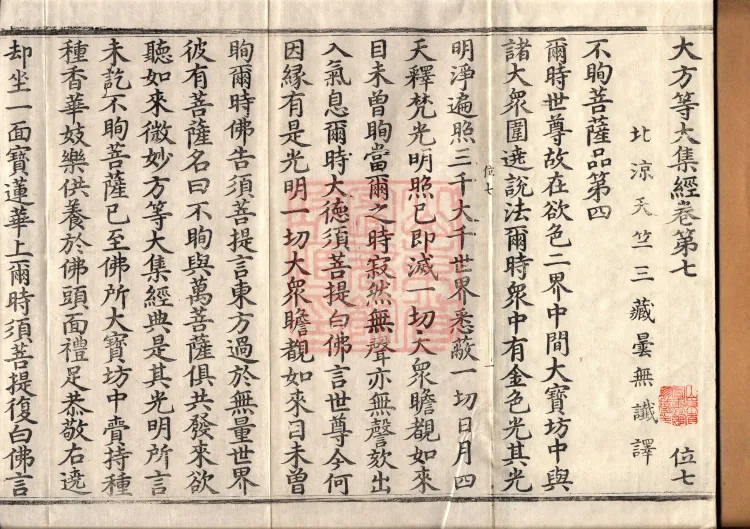 大方等大集經卷第七 位七
北涼天竺三藏曇無讖譯
不眴菩薩品第四
爾時世尊故在欲色二界中間大寶坊中與
諸大眾圍遶說法爾時眾中有金色光其光
位七
明淨遍照三千大千世界悉蔽一切日月四
天釋梵光明照已即滅一切大眾瞻覩如來
目未曾眴當爾之時寂然無聲亦無謦欬出
入氣息爾時大德須菩提白佛言世尊今何
因緣有是光明一切大眾瞻覩如來目未曾
眴爾時佛告須菩提言東方過於無量世界
彼有菩薩名曰不眴與萬菩薩俱共發來欲
聽如來微妙方等大集經典是其光明所言
未訖不眴菩薩已至佛所大寶坊中賷持種
種香華妓樂供養於佛頭面禮足恭敬右遶
却坐一面寶蓮華上爾時須菩提復白佛言